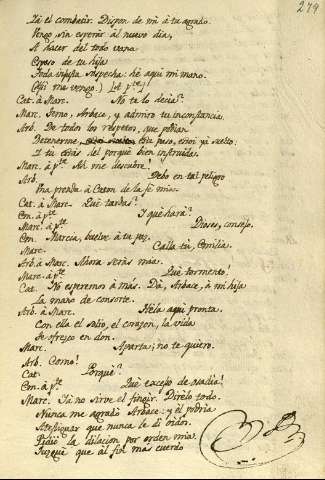 279
Yá el combatir. Dispon de mi à tu agrado.
Vengo, sin esperar al nuevo dia,
A hacer del todo vana
Esposo de tu hija
Toda injusta sospecha: hé aqui mi mano.
(Asi me vengo.) [á p.te]
Cat. à Marc. No te lo decia?
Marc. Temo, Arbace, y admiro tu inconstancia.
Arb. De todos los respetos, que podian
Detenerme, este paso, estoi yá suelto.
I tu estás del porqué bien instruida.
Marc. à p.te Ah me descubre!
Arb. Debo en tal peligro
Una prenda à Caton de la fé mia.
Cat. à Marc. Qué tardas?
Em. à p.te I qué hará?
Marc. à p.te Dioses, consejo.
Em. Marcia, buelve à tu paz.
Marc. Calla tu, Emilia.
Arb. à Marc. Ahora serás mia.
Marc. à p.te Qué tormento!
Cat. No esperemos à mas. Dá, Arbace, à mi hija
La mano de consorte.
Arb. à Marc. Hela aqui pronta.
Con ella el solio, el corazon, la vida
Te ofrezco en don.
Marc. Aparta; no te quiero.
Arb. Como!
Cat. Porqué?
Em. à p.te Qué exceso de osadia!
Marc. Yá no sirve el fingir. Dirélo todo.
Nunca me agradó Arbace: y él podria
Atestiguar que nunca le di oidos.
Pidio la dilacion por orden mia.
Juzgué que al fin mas cuerdo